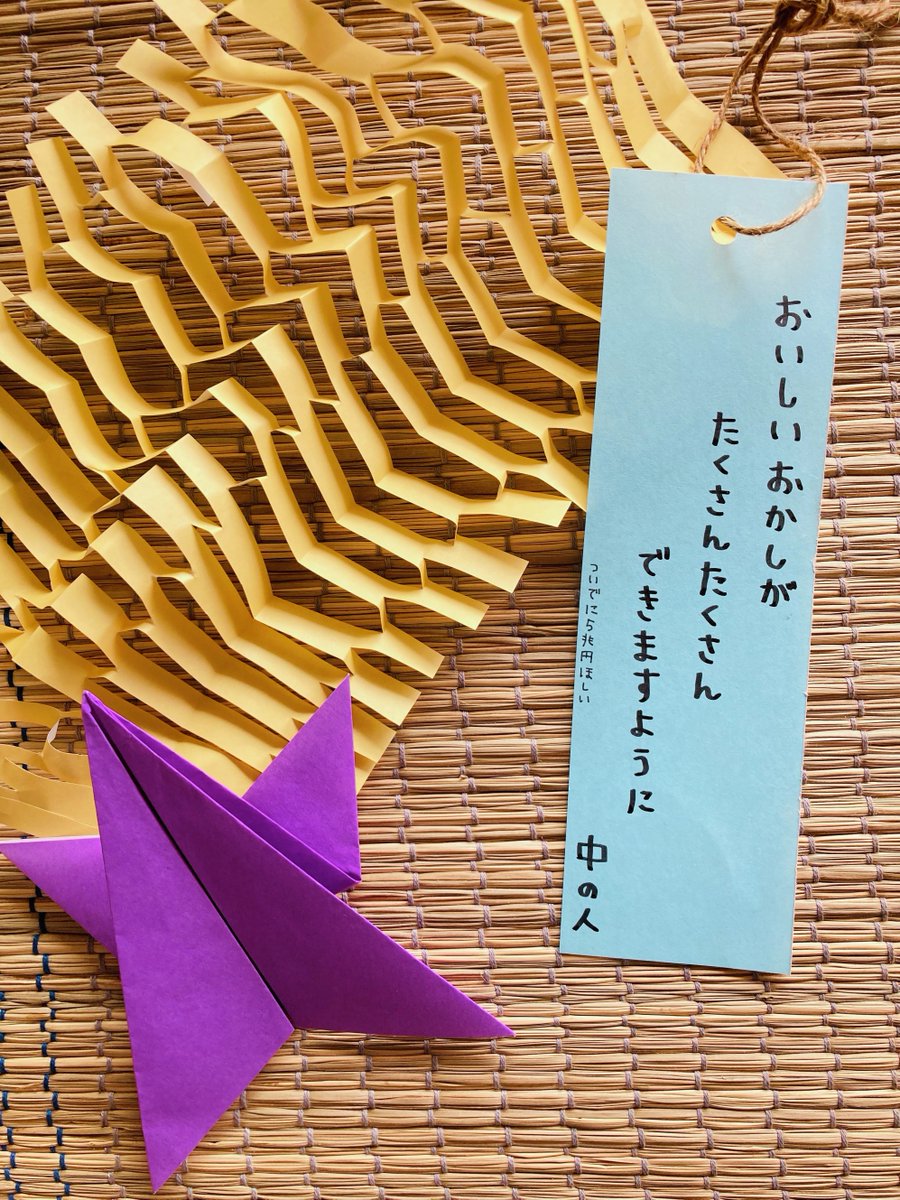 おいしいおかしが
たくさんたくさん
できますように
ついでに5兆円ほしい
中の人